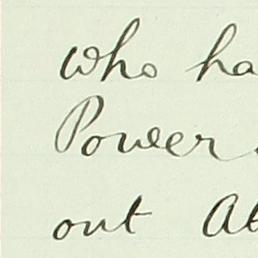 who ha
Power
out At